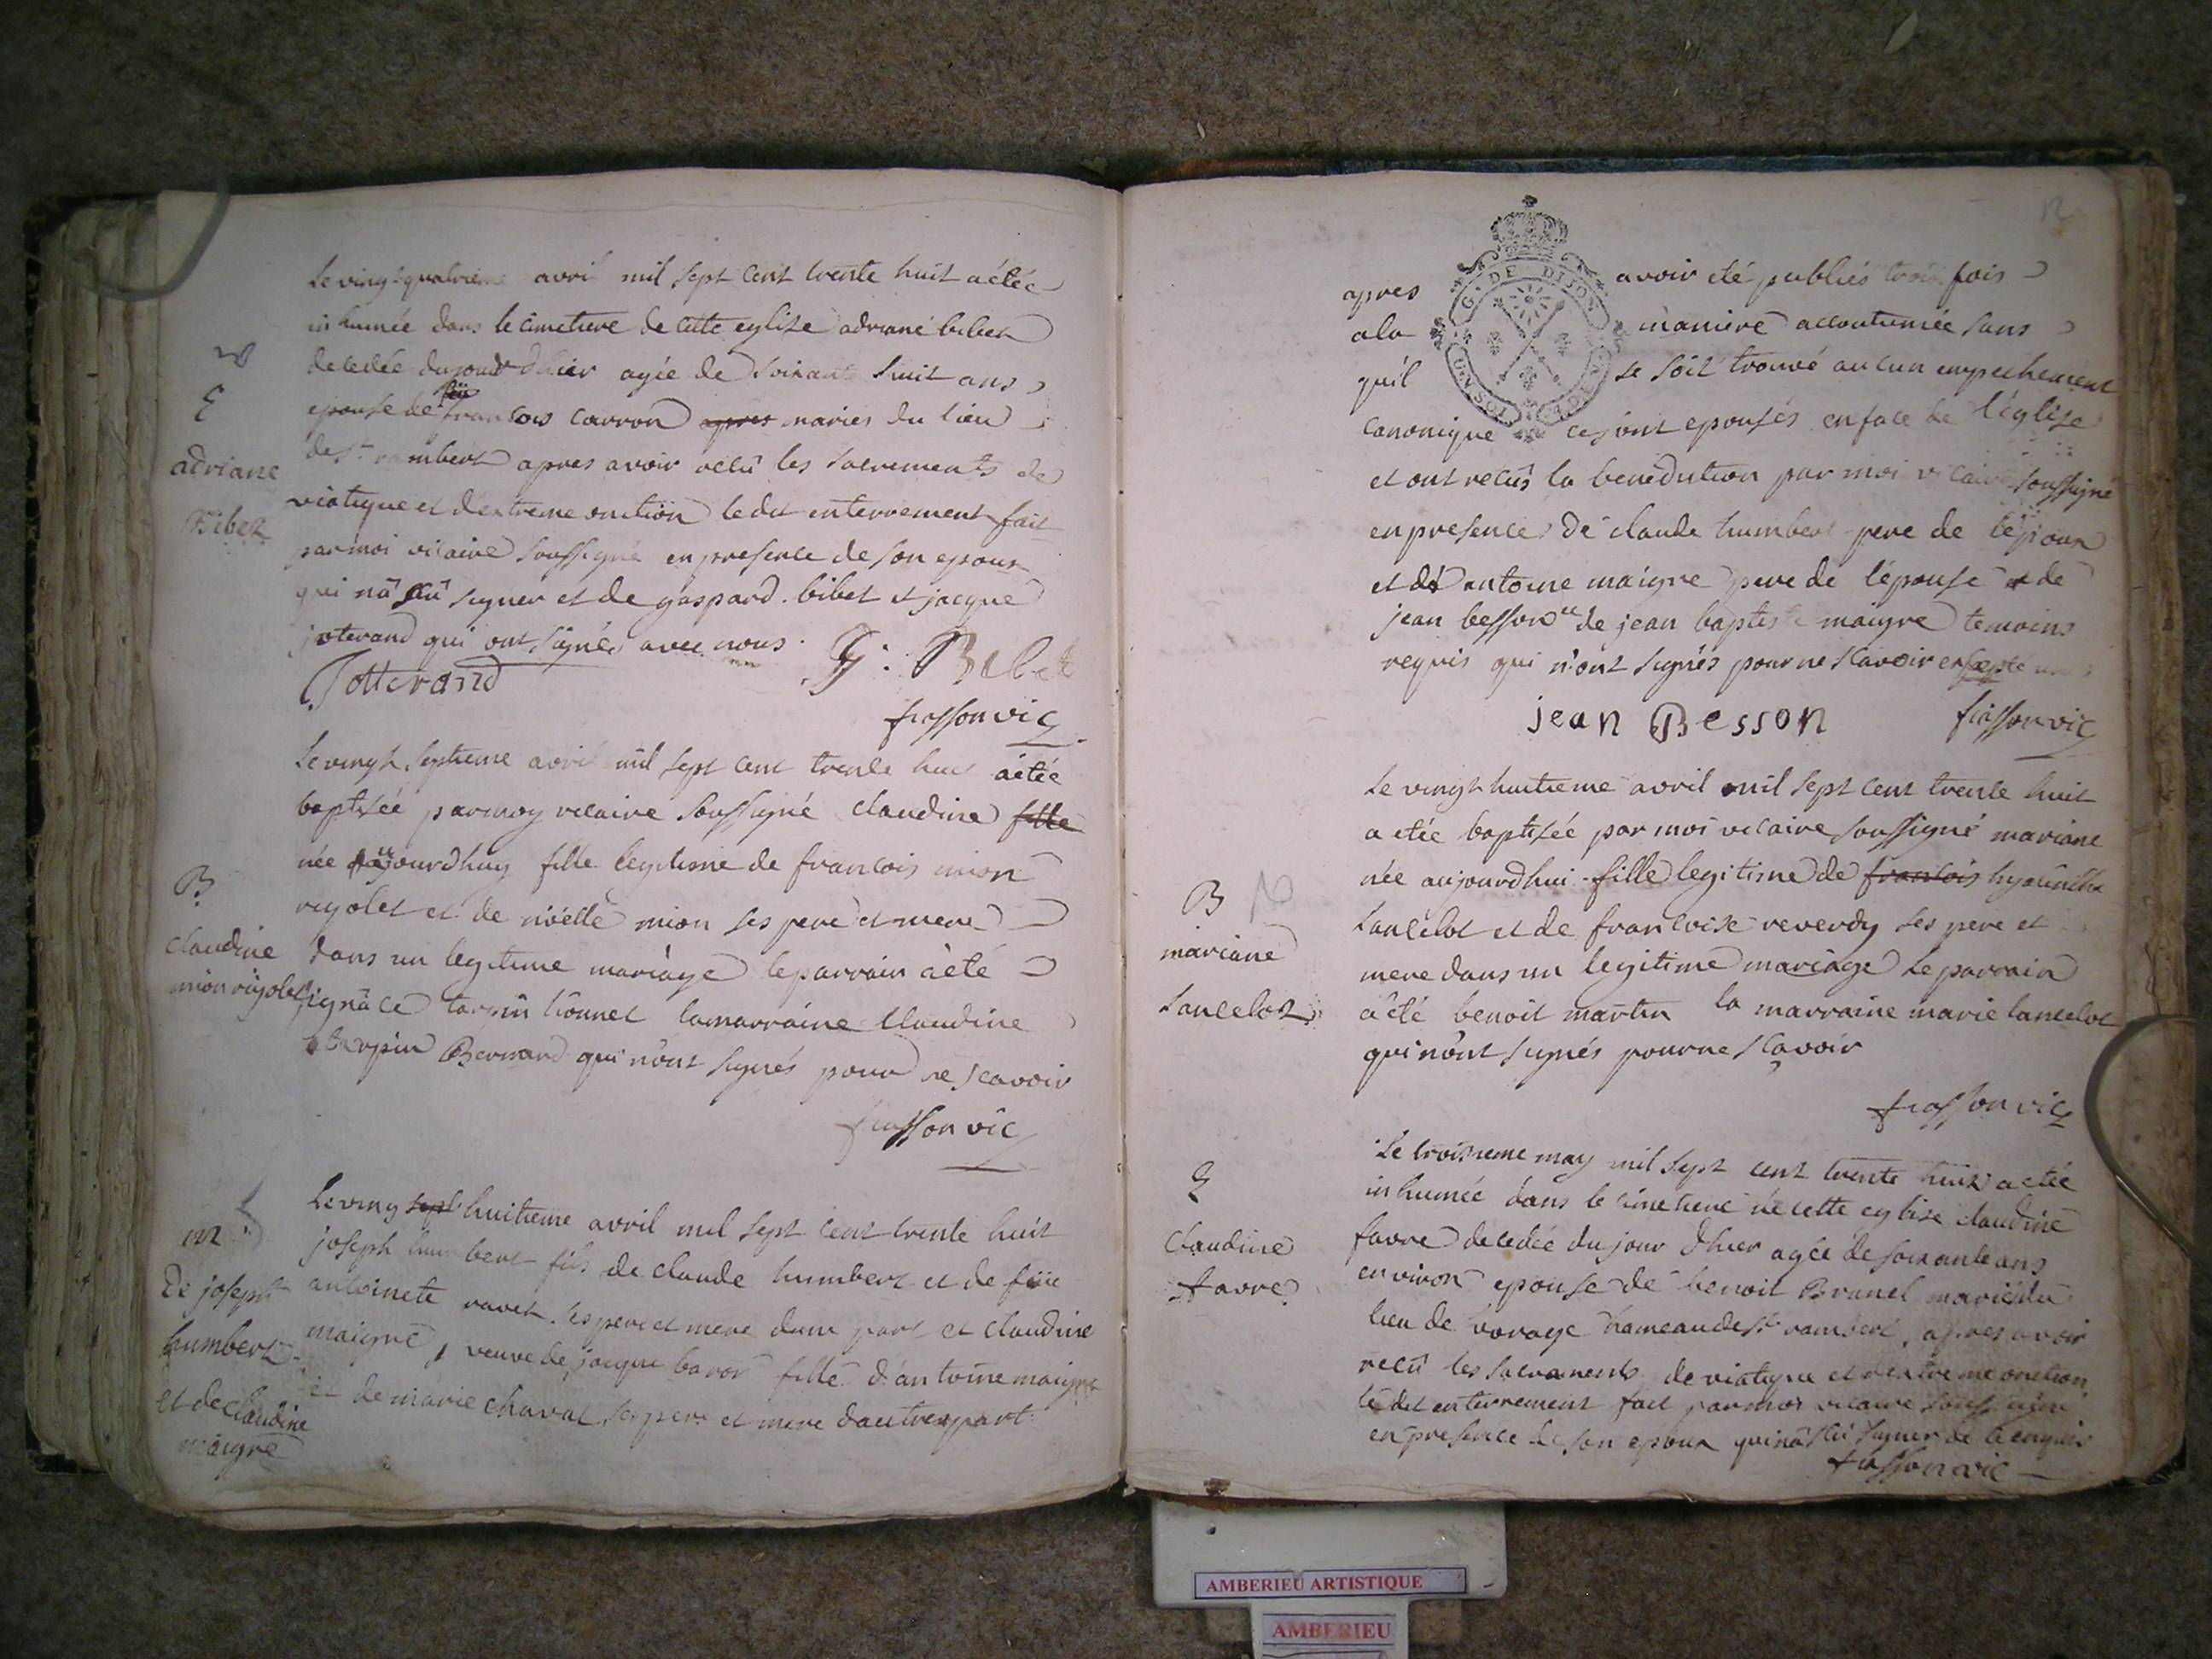 Le vingt quatrieme avril mil sept cent trente huit a étée
inhumée dans le cimetiere de cette eglise adriane bibet
decedée du jour d'hier agée de soixante huit ans
epouse de feu francois carron apres maries du lieu
de st rambert apres avoir recû les sacrements de
viatique et d'extreme onction le dit enterrement fait
par moi vicaire soussigné en presence de son epoux
qui nâ scû signer et de gaspard bibet et jacque
joterand qui ont signés avec nous
G: Bibet
Jotterand
frasson vic
E
adriane
Bibet
Le vingt septieme avril mil sept cent trente huit a étée
baptisée par moy vicaire soussigné claudine fille
née aujourdhuy fille legitime de francois mion
rigolet et de nôelle mion ses pere et mere
dans un legitime mariage le parrain a été
ignâce tarpin la marraine Claudine
tarpin Bernard qui n'ônt signés pour ne scavoir
frasson vic
B
claudine
mion rigolet
Le ving sept huitieme avril mil sept cent trente huit
joseph humbert fils de claude humbert et de füe
antoinete ravet ses pere et mere dune part et claudine
maigre, veuve de jacque baron fille d'antoine maigre
et de marie chavat ses pere et mere dautre part
m
De joseph
humbert
et de claudine
maigre
12
G. DE DIJON
apres avoir eté publiés trois fois
a la maniere accoutumée sans
qu'il se soit trouvé aucun empechement
canonique ce sont epousés en face de l'église
et ont recûs la benediction par moi vicaire soussigné
en presence de claude humbert pere de l'époux
et de antoine maigre pere de l'épouse et de
jean besson et de jean baptiste maigre temoins
requis qui n'ont signés pour ne scavoir excepté
jean Besson
frasson vic
Le vingt huitieme avril mil sept cent trente huit
a etée baptisée par moi vicaire soussigné mariane
née aujourdhui fille legitime de francois hyacinthe
Lancelot et de francoise reverdy ses pere et
mere dans un legitime mariage Le parrain
a été benoit martin la marraine marie lancelot
qui n'ônt signés pour ne sçavoir
frasson vic
B
mariane
Lancelot
Le troisieme may mil sept cent trente huit a etée
inhumée dans le cimetiere de cette eglise claudine
favre decedée du jour d'hier agée de soixante ans
environ epouse de benoit Brunel mariés du
lieu de vorage hameau de st rambert, apres avoir
recû les sacrements de viatique et d'extreme onction
le dit enterrement fait par moi vicaire soussigné
en presence de son epoux qui nâ scû signer de ce enquis
frasson vic
E
Claudine
favre
AMBERIEU ARTISTIQUE
AMBERIEU